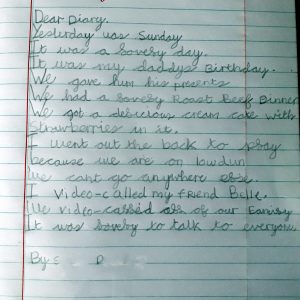 Dear Diary.
Yesterday was Sunday
It was a lovely day.
It was my daddys Birthday.
We gave him his presents
We had a lovely Roast Beef Dinner
We got a delicious cream cake with
Strawberries in it.
I went out the back to play
because we are on
we cant go anywhere else.
I video-called my friend Belle.
We video-called all of our Family
It was lovely to talk to everyone.
By